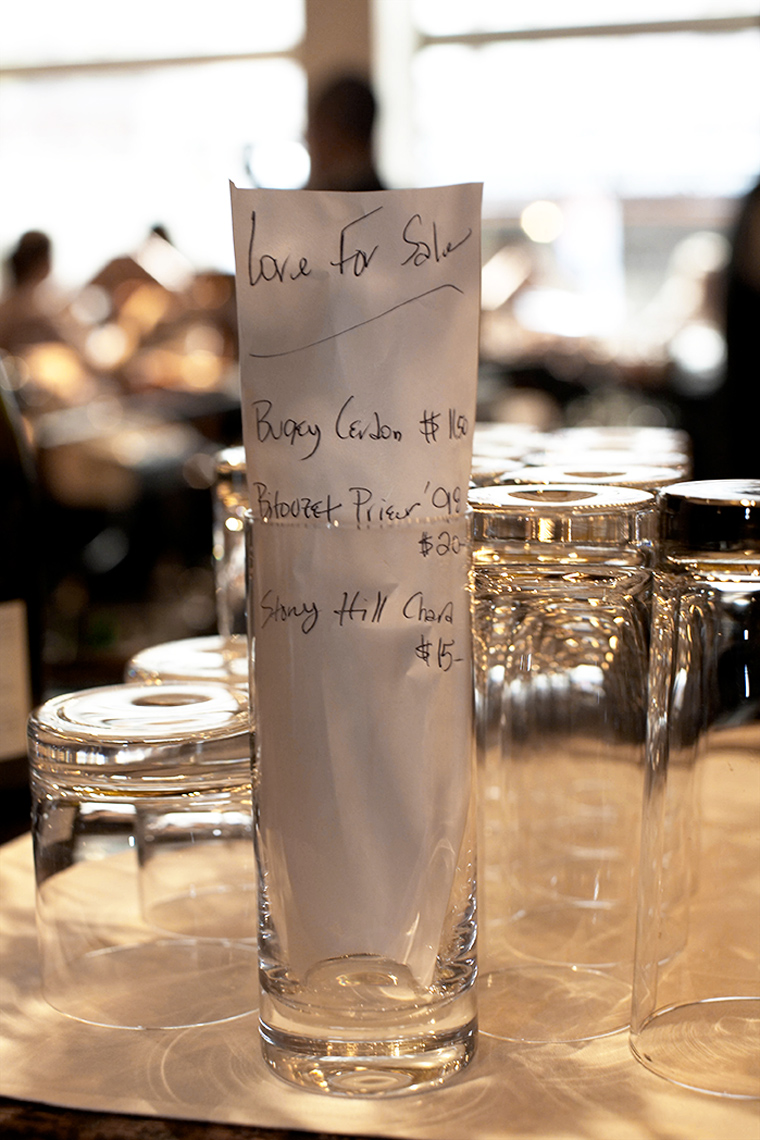 Love For Sale
Bugey Cerdon $1150
Bitouzet Prieur '98
$20-
Stony Hill Chard
$15-